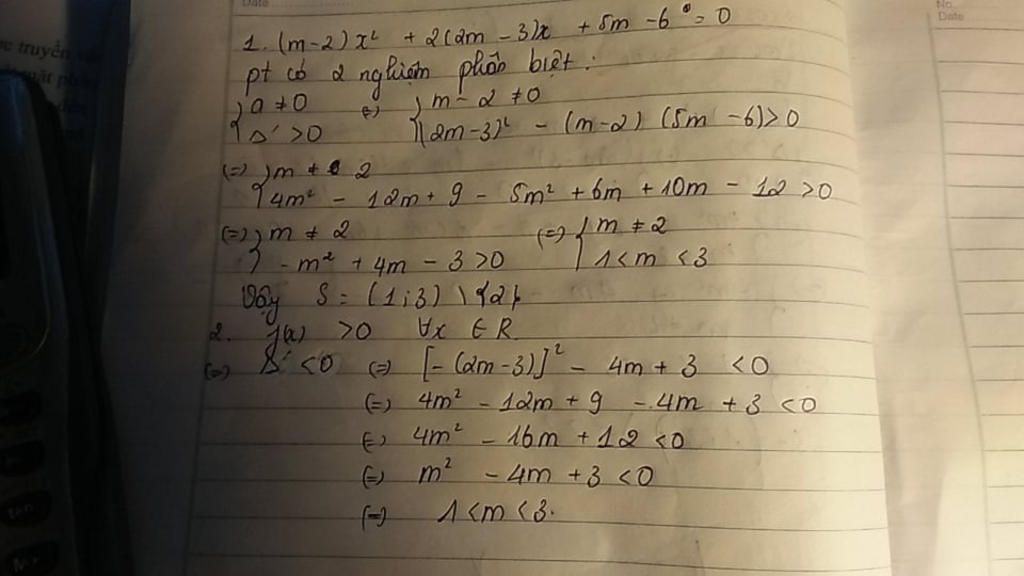 Date
No.
Date
ặc truyền
mặt ph
1. (m-2)x² + 2(2m-3)x + 5m-6 = 0
pt có 2 nghiệm phân biệt:
{a ≠ 0 (=) {m-2 ≠ 0
{Δ' > 0 {(2m-3)² - (m-2)(5m-6) > 0
(=) {m ≠ 2
{4m² - 12m + 9 - 5m² + 6m + 10m - 12 > 0
(=) {m ≠ 2 (=) {m ≠ 2
{-m² + 4m - 3 > 0 {1 < m < 3
Vậy S = (1;3) \ {2}
2. f(x) > 0 ∀x ∈ R
(=) Δ' < 0 (=) [-(2m-3)]² - 4m + 3 < 0
(=) 4m² - 12m + 9 - 4m + 3 < 0
(=) 4m² - 16m + 12 < 0
(=) m² - 4m + 3 < 0
(=) 1 < m < 3.